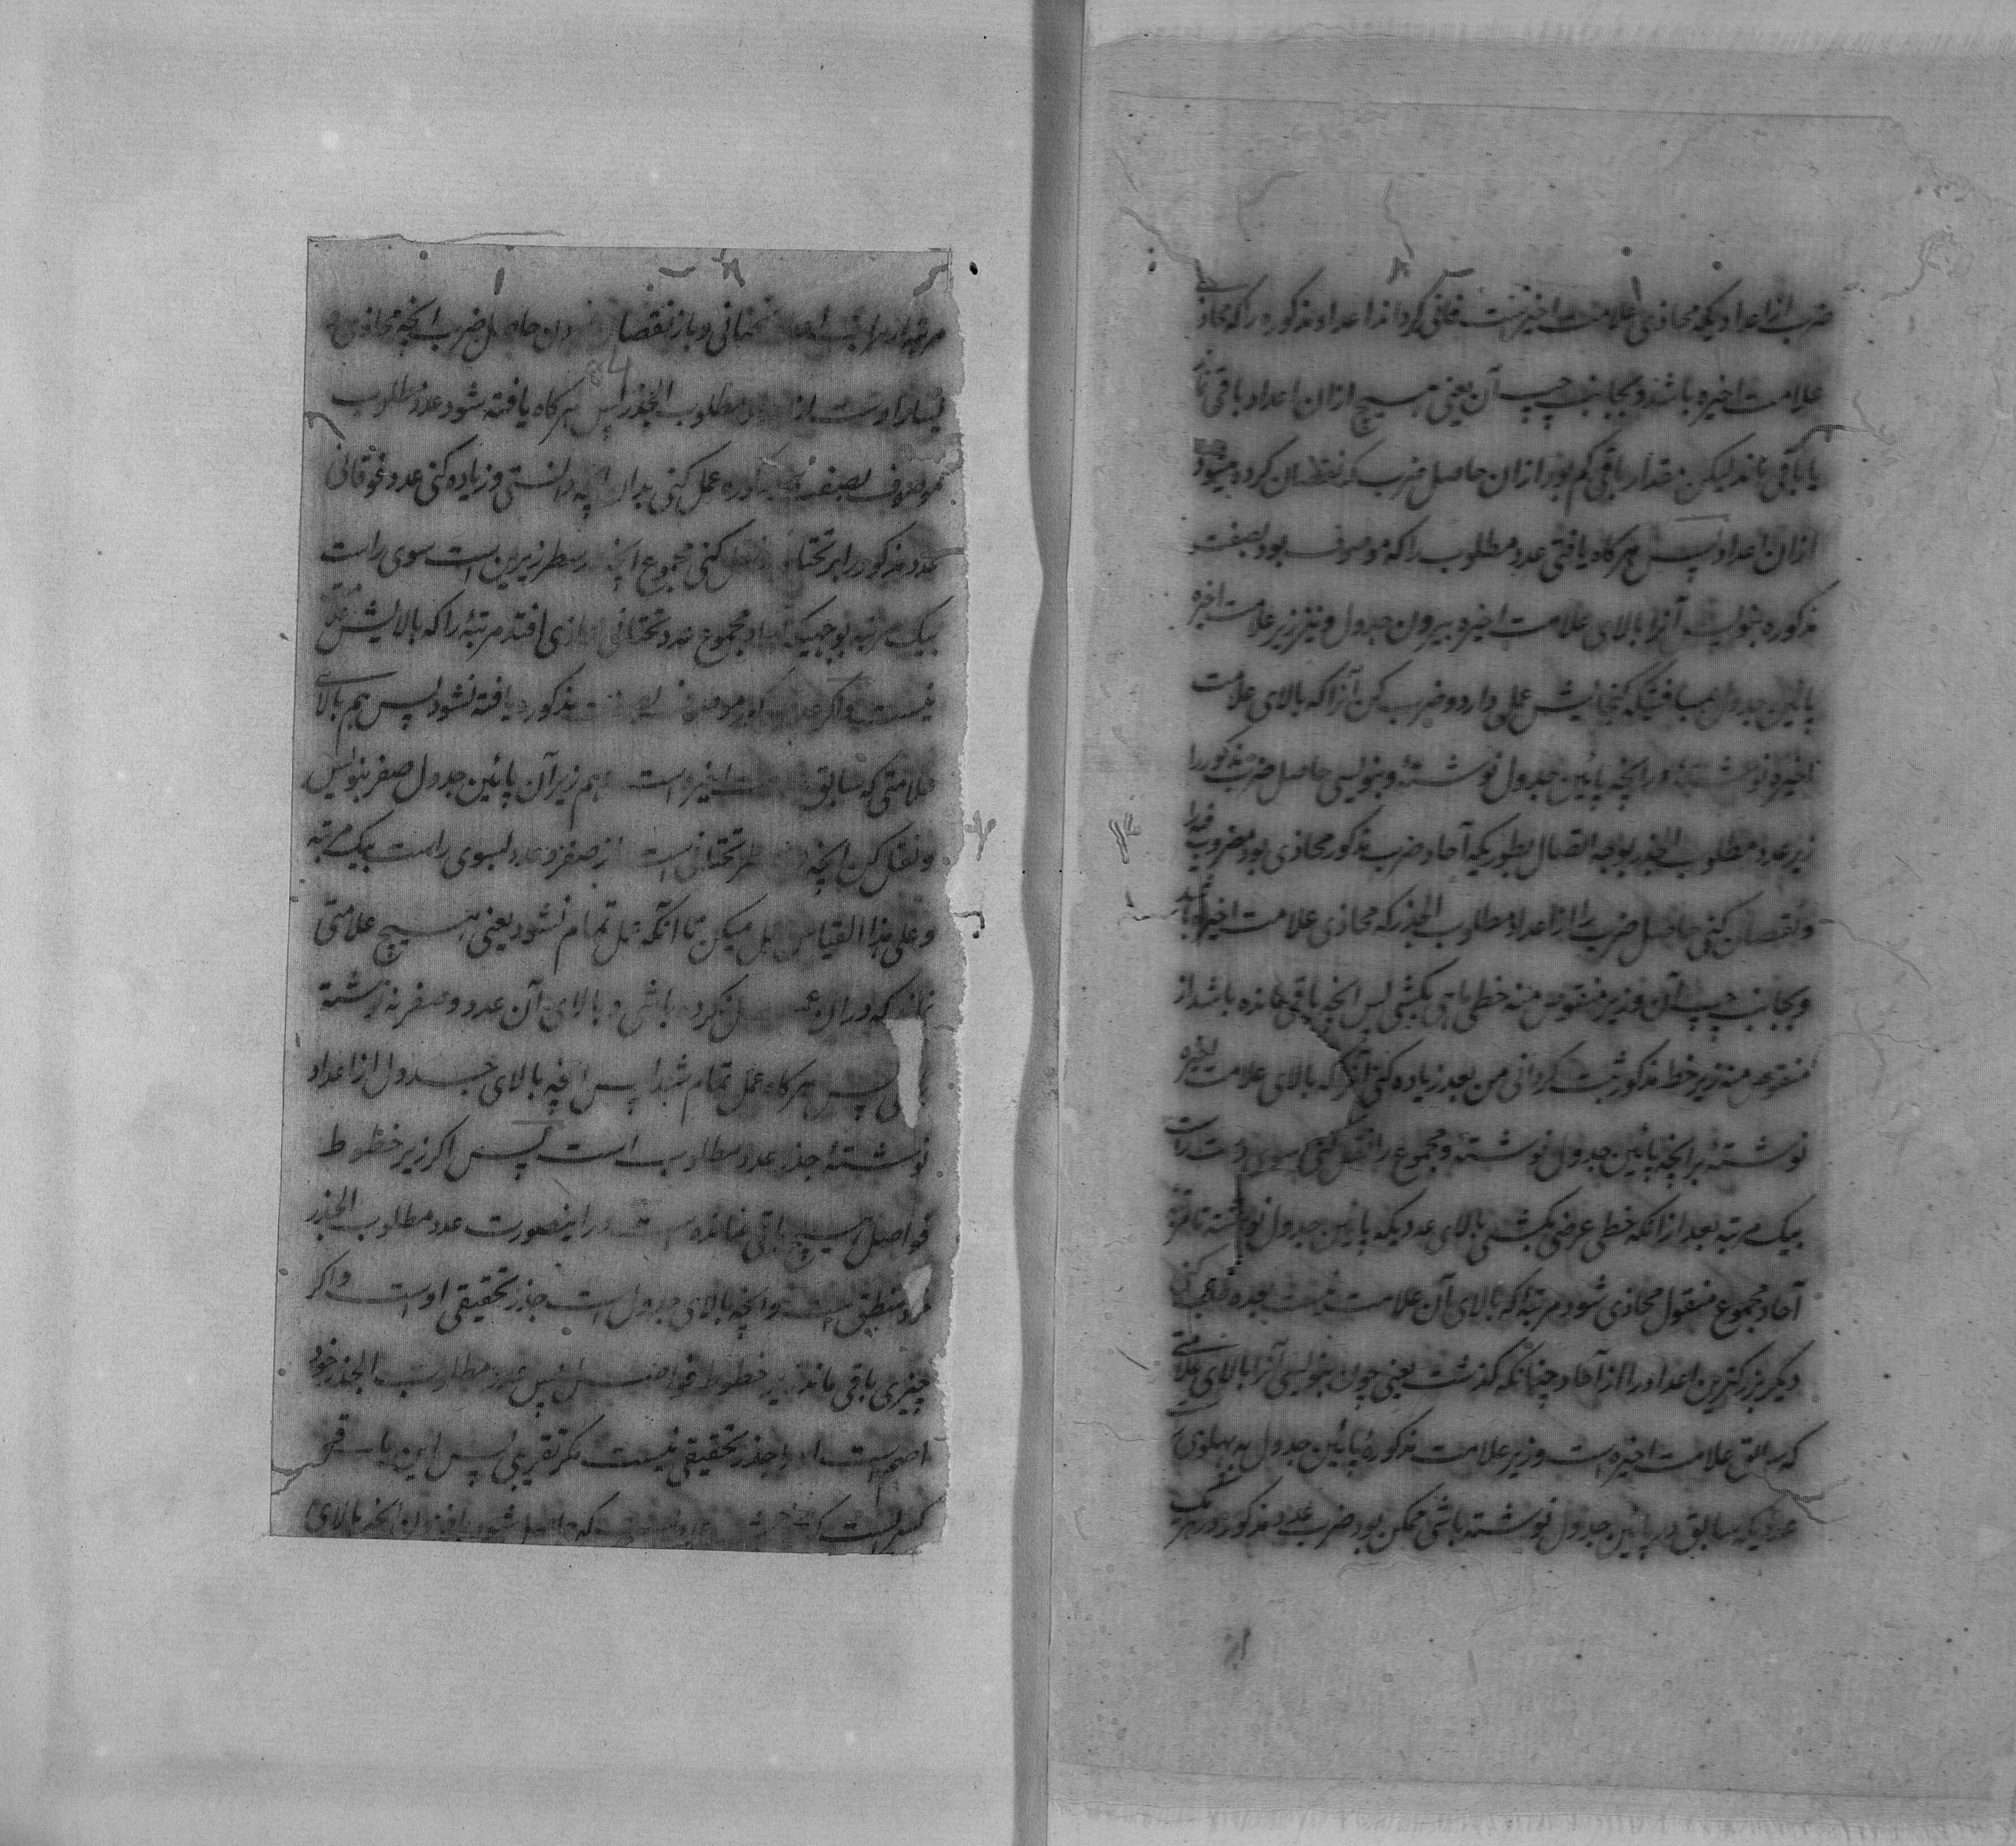 ضرب از اعداد یکه محاذی علامت اخیر نیست فانی گرداند اعداد مذکوره را که محاذ
علامت اخیره باشد و بجانب چپ آن یعنی هیچ ازان اعداد باقی
یا باقی ماند لیکن مقدار باقی کم بود ازان حاصل ضرب که نقصان کرده میشود
ازان اعداد پس هرکاه یافتی عدد مطلوب را که موصوف بود بصفت
مذکوره بنویس آنرا بالای علامت اخیره بیرون جدول و نیز زیر علامت اخیره
پائین جدول بمسافتیکه کنجایش عمل دارد و ضرب کن آنرا که بالای علامت
اخیره نوشتهٔ در انچه پائین جدول نوشتهٔ و بنویسی حاصل ضرب مذکور را
زیر عدد مطلوب الجذر بوجه اتصال بطوریکه آحاد ضرب مذکور محاذی بود مضروب فیه را
و نقصان کنی حاصل ضرب را از اعداد مطلوب الجذر که محاذی علامت اخیره
و بجانب چپ آن و زیر منقوص منه خطی باری بکشی پس انچه باقی مانده باشد از
منقوص منه زیر خط مذکور ثبت کردانی من بعد زیاده کنی آنرا که بالای علامت اخیره
نوشتهٔ برانچه پائین جدول نوشتهٔ و مجموع را نقل کنی سوی دست راست
بیک مرتبه بعد ازانکه خطی عرضی بکشی بالای عددیکه پائین جدول نوشتهٔ تا مرتبهٔ
آحاد مجموع منقول محاذی شود مرتبهٔ را که بالای آن علامت نیست بعده طلب کنی
دیکر بزرکترین اعداد را از آحاد چنانکه کذشت یعنی چون بنویسی آنرا بالای علامتی
که سابق علامت اخیره است و زیر علامت مذکورهٔ پائین جدول به پهلوی
عددیکه سابق در پائین جدول نوشته باشی ممکن بود ضرب عدد مذکور در هر یک
از
مرتبه از مراتب اعداد تحتانی و باز نقصان کردن حاصل ضرب از انچه محاذی و
یسار اوست از عدد مطلوب الجذر پس هرکاه یافته شود عدد مطلوب
84
موصوف بصفت مذکوره عمل کنی بدان انچه دانستی و زیاده کنی عدد فوقانی
عدد مذکور را بر تحتانی و نقل کنی مجموع انچه در سطر زیرین است سوی راست
بیک مرتبه بوجهیکه آحاد مجموع عدد تحتانی محاذی افتد مرتبهٔ را که بالایش علامت
نیست و اکر عدد مذکور موصوف بصفت مذکوره یافته نشود پس هم بالای
علامتی که سابق علامت اخیره است و هم زیر آن پائین جدول صفر بنویس
و نقل کن انچه در سطر تحتانی است از صفر و عدد بسوی راست بیک مرتبه
و علی هذا القیاس عمل میکن تا آنکه عمل تمام شود یعنی هیچ علامتی
نماند که دران عمل نکرده باشی و بالای آن عدد و صفر ننوشته
باشی پس هرکاه عمل تمام شد پس انچه بالای جدول از اعداد
نوشتهٔ جذر عدد مطلوب است پس اکر زیر خطوط
فواصل هیچ باقی نمانده است دراینصورت عدد مطلوب الجذر
خود منطق است و انچه بالای جدول است جذر تحقیقی اوست و اکر
چیزی باقی ماند زیر خطوط فواصل پس عدد مطلوب الجذر خود
اصم است او را جذر تحقیقی نیست مکر تقریبی پس این باقی
کسریست که حاصل شود بالای